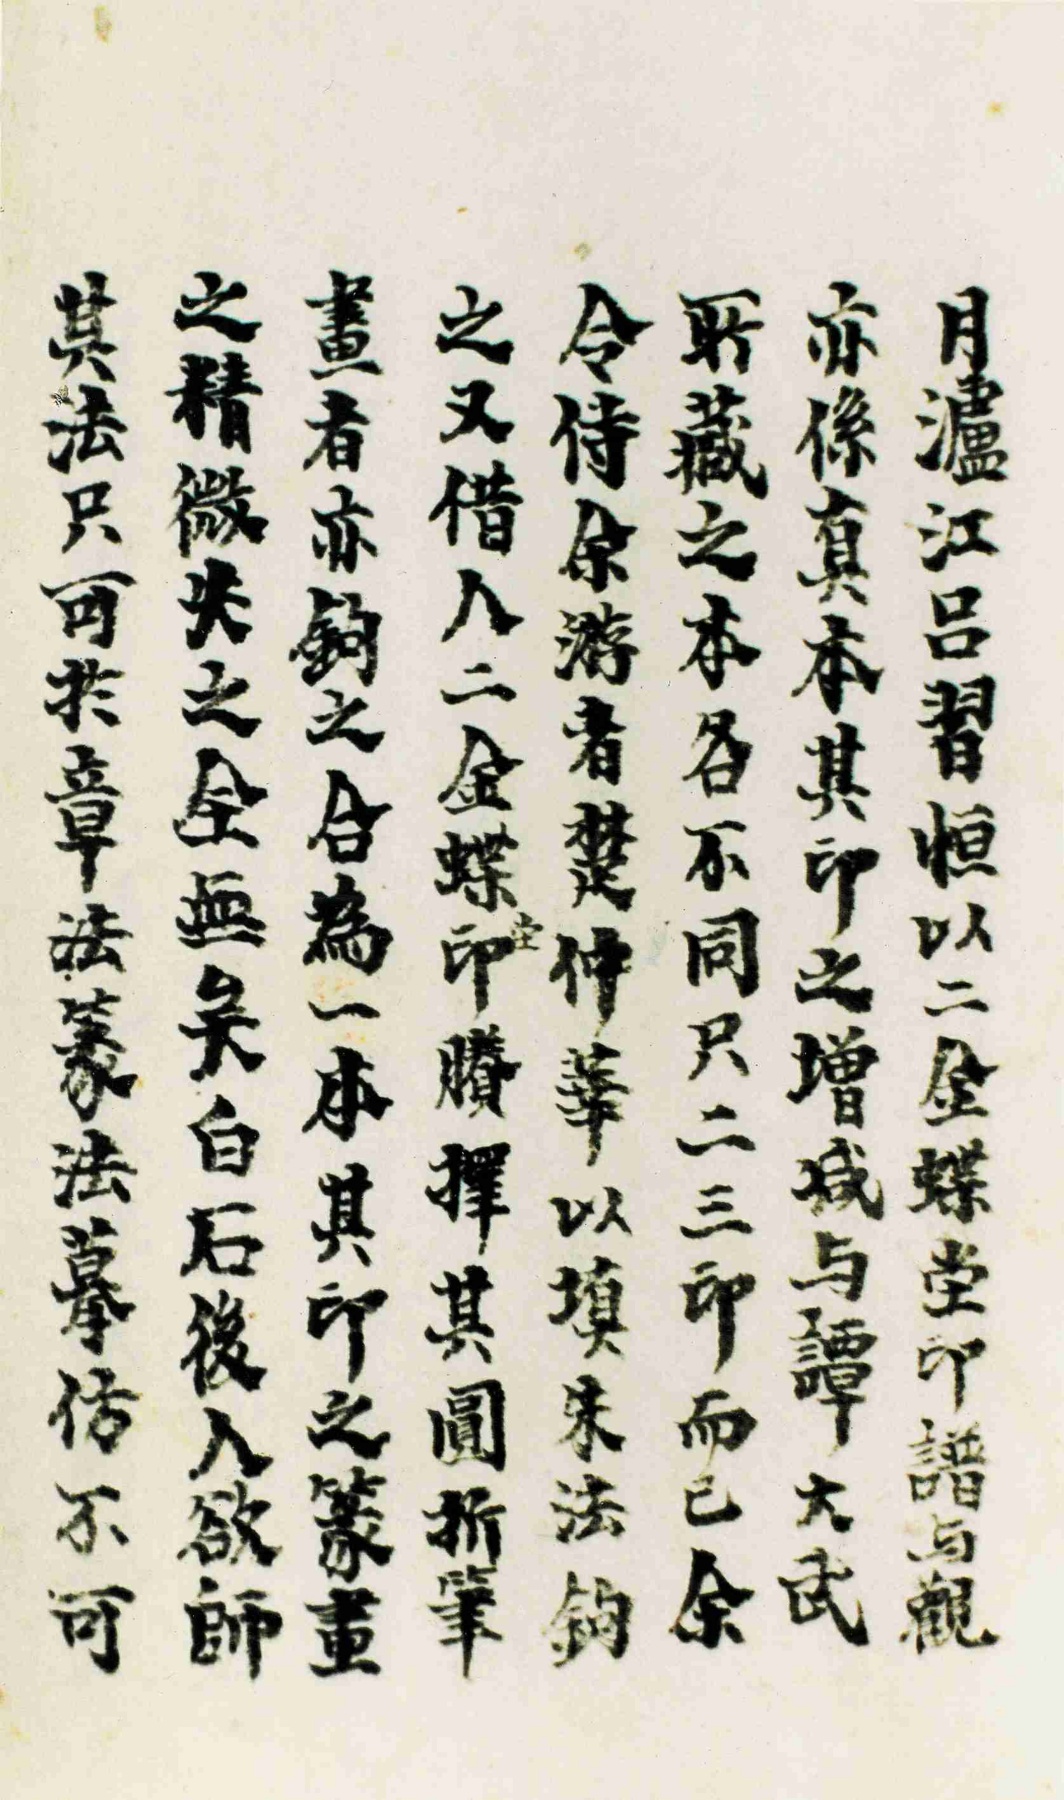 月瀘江呂習恒以二金蝶堂印譜与觀
亦係真本其印之增減与譚大武
所藏之本各不同只二三印而已余
令侍余游者楚仲華以填朱法鉤
之又借人二金蝶堂印賸擇其圓折筆
畫者亦鉤之合為一本其印之篆畫
之精微失之全無矣白石後人欲師
其法只可於章法篆法摹仿不可